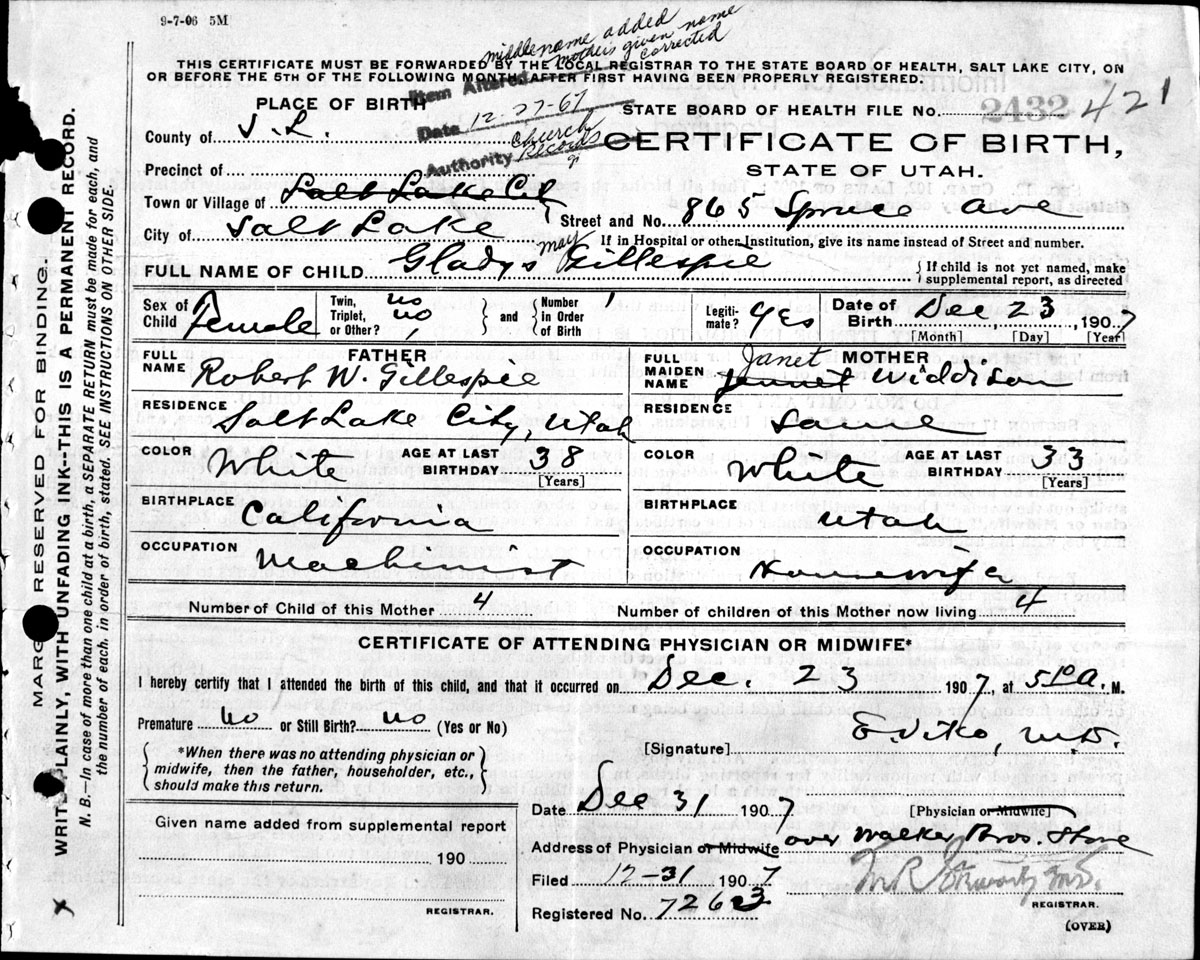 9-7-06 5M
middle name added
mothers given name
corrected
THIS CERTIFICATE MUST BE FORWARDED BY THE LOCAL REGISTRAR TO THE STATE BOARD OF HEALTH, SALT LAKE CITY, ON
OR BEFORE THE 5TH OF THE FOLLOWING MONTH AFTER FIRST HAVING BEEN PROPERLY REGISTERED.
Item Altered
PLACE OF BIRTH
Date 12-27-67
STATE BOARD OF HEALTH FILE No. 2432 421
County of S. L.
Authority Church Records
CERTIFICATE OF BIRTH,
STATE OF UTAH.
Precinct of
Town or Village of Salt Lake City
Street and No. 865 Spruce Ave
City of Salt Lake
If in Hospital or other Institution, give its name instead of Street and number.
FULL NAME OF CHILD Gladys May Gillespie
If child is not yet named, make supplemental report, as directed
Sex of Child Female
Twin, Triplet, or Other? no no
and Number in Order of Birth 1
Legitimate? Yes
Date of Birth Dec 23, 1907
[Month] [Day] [Year]
FATHER
FULL NAME Robert W. Gillespie
RESIDENCE Salt Lake City, Utah
COLOR White AGE AT LAST BIRTHDAY 38 [Years]
BIRTHPLACE California
OCCUPATION Machinist
MOTHER
FULL MAIDEN NAME Janet Jennet Widdison
RESIDENCE Same
COLOR White AGE AT LAST BIRTHDAY 33 [Years]
BIRTHPLACE Utah
OCCUPATION Housewife
Number of Child of this Mother 4 Number of children of this Mother now living 4
CERTIFICATE OF ATTENDING PHYSICIAN OR MIDWIFE*
I hereby certify that I attended the birth of this child, and that it occurred on Dec. 23 1907, at A. M.
Premature No or Still Birth? no (Yes or No)
*When there was no attending physician or midwife, then the father, householder, etc., should make this return.
[Signature] E. Viko, M.D.
Date Dec 31 1907 [Physician or Midwife]
Address of Physician or Midwife over Walker Bros. Store
Filed 12-31 1907
REGISTRAR.
Registered No. 7263
(OVER)
Given name added from supplemental report
190
REGISTRAR.
MARGIN RESERVED FOR BINDING.
WRITE PLAINLY, WITH UNFADING INK--THIS IS A PERMANENT RECORD.
N. B.--In case of more than one child at a birth, a SEPARATE RETURN must be made for each, and
the number of each, in order of birth, stated. SEE INSTRUCTIONS ON OTHER SIDE.
X